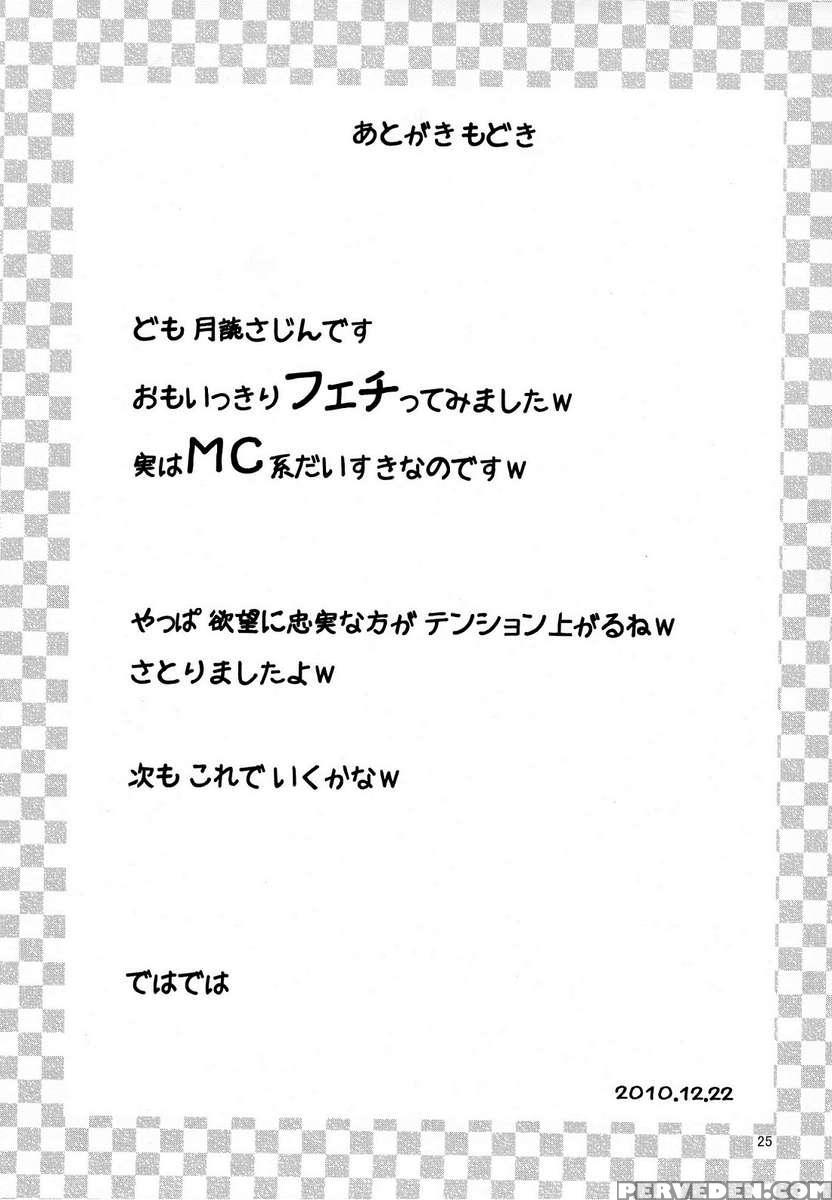 あとがきもどき
ども 月荒さじんです
おもいっきりフェチってみましたw
実はMC系だいすきなのですw
やっぱ 欲望に忠実な方が テンション上がるねw
さとりましたよw
次も これで いくかなw
ではでは
2010.12.22
25
PERVEDEN.COM